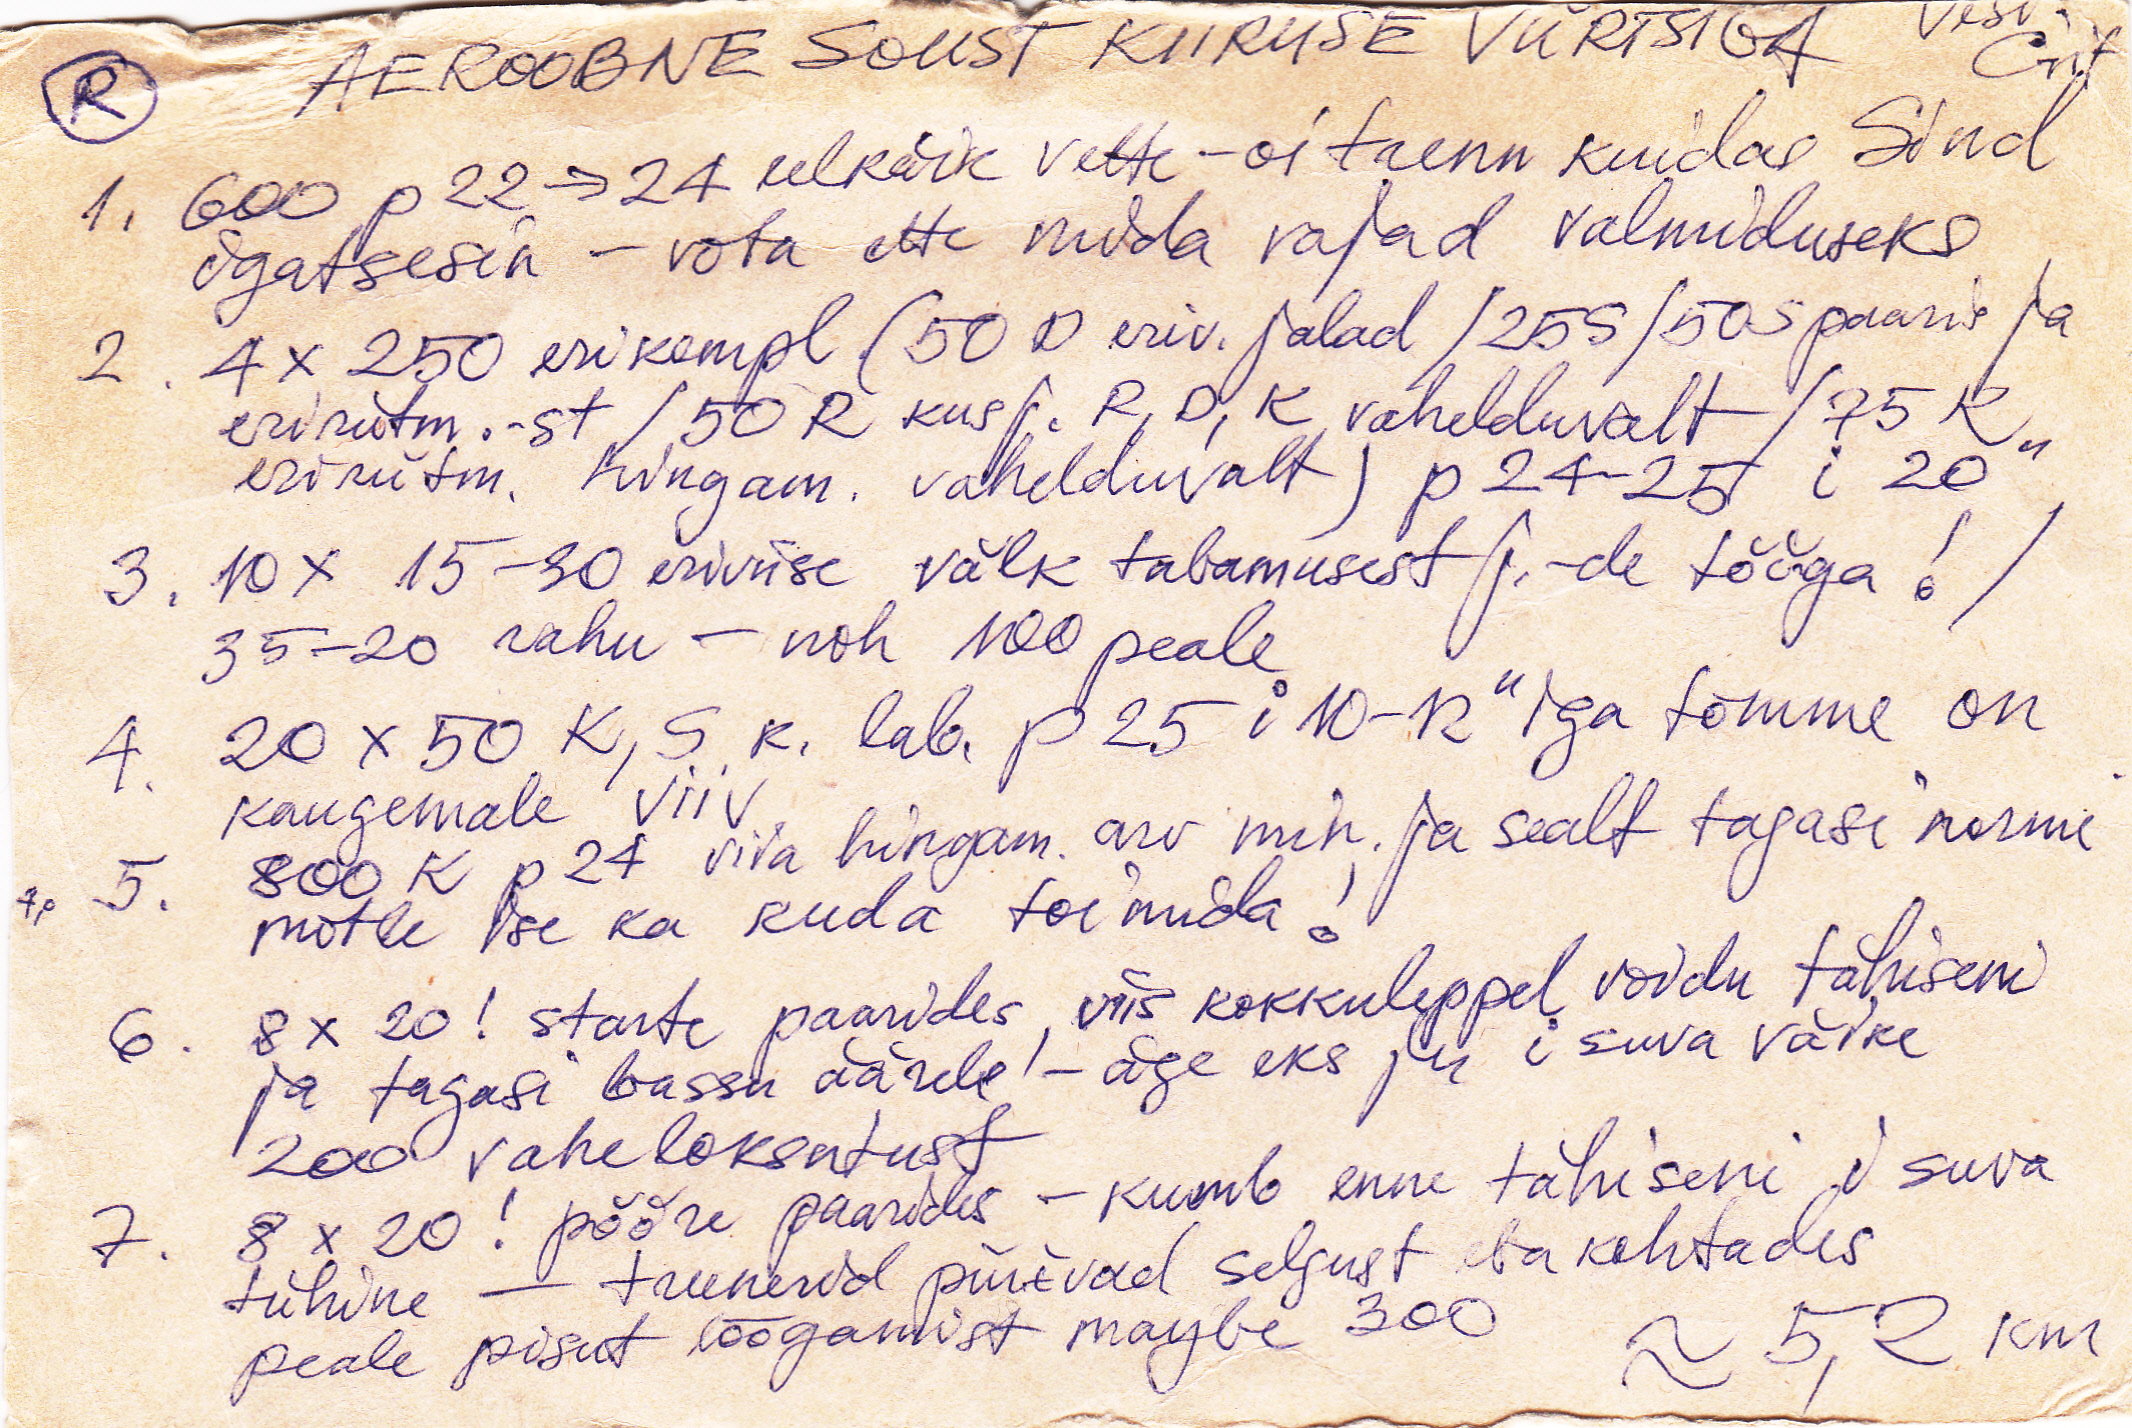 R AEROOBNE SOUST KIIRUSE VÜRTSIGA
1. 600 p 22 → 24 eelkäik vette - oi trenn kuidas Sind
igatsesin - võta ette mida vajad valmiduseks
2. 4 x 250 erikompl (50 D eriv. jalad / 25 S / 50 S paaris ja
erirütm.-st / 50 R kusj. R, D, K vahelduvalt / 75 K
erirütm. hingam. vahelduvalt) p 24-25 i 20"
3. 10 x 15-30 eriviise välk tabamusest j.-de tööga! /
35-20 rahu - noh 100 peale
4. 20 x 50 K, S k. lab. p 25 i 10-12" iga tõmme on
kaugemale viiv
5. 800 K p 24 viia hingam. arv min. ja sealt tagasi normi
mõtle ise ka kuda toimida!
6. 8 x 20! starte paarides, viis kokkuleppel võidu tähiseni
ja tagasi bassu äärele! - äge eks ju i suva väike
200 vaheloksutust
7. 8 x 20! pööre paarides - kumb enne tähiseni i suva
tühine - treenerid püüavad selgust eba kohtades
peale pisut lõõgamist maybe 300 ≈ 5,2 km